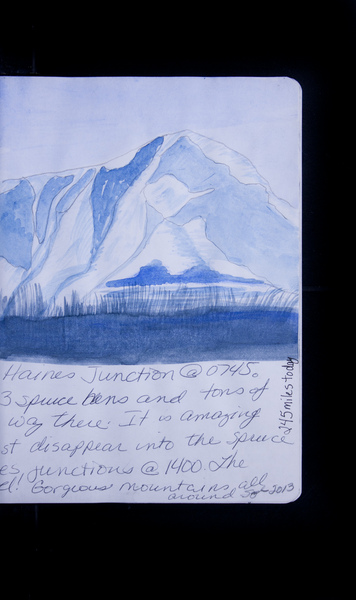 Haines Junction @ 0745.
3 Spruce hens and tons of
way there. It is amazing
st disappear into the Spruce
es Junctions @ 1400. The
d! Gorgeous mountains all
around 2013
245 miles today